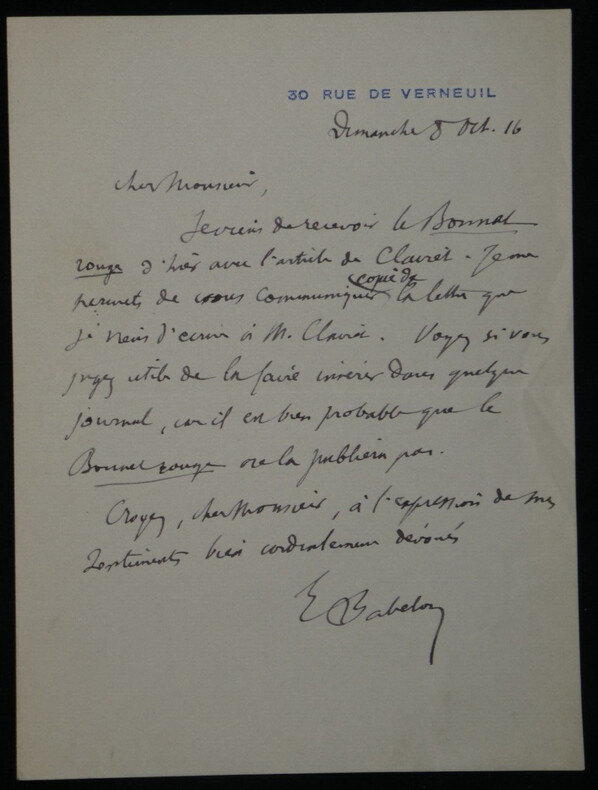 30 RUE DE VERNEUIL
Dimanche 8 Oct. 16
Cher Monsieur,
Je viens de recevoir le Bonnet
rouge d'hier avec l'article de Clairet - Je me
permets de vous communiquer la copie de la lettre que
je viens d'écrire à M. Clairet. Voyez si vous
jugez utile de la faire insérer dans quelque
journal, car il est bien probable que le
Bonnet rouge ne la publiera pas.
Croyez, cher Monsieur, à l'expression de mes
sentiments bien cordialement dévoués
E Babelon